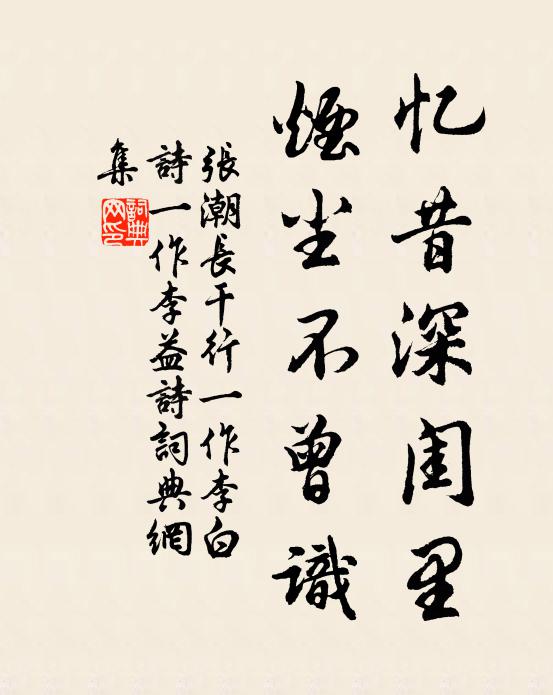 忆昔深闺里
煙尘不曾識
張潮長干行一作李白
詩一作李益詩詞典網
集
詞典
网印